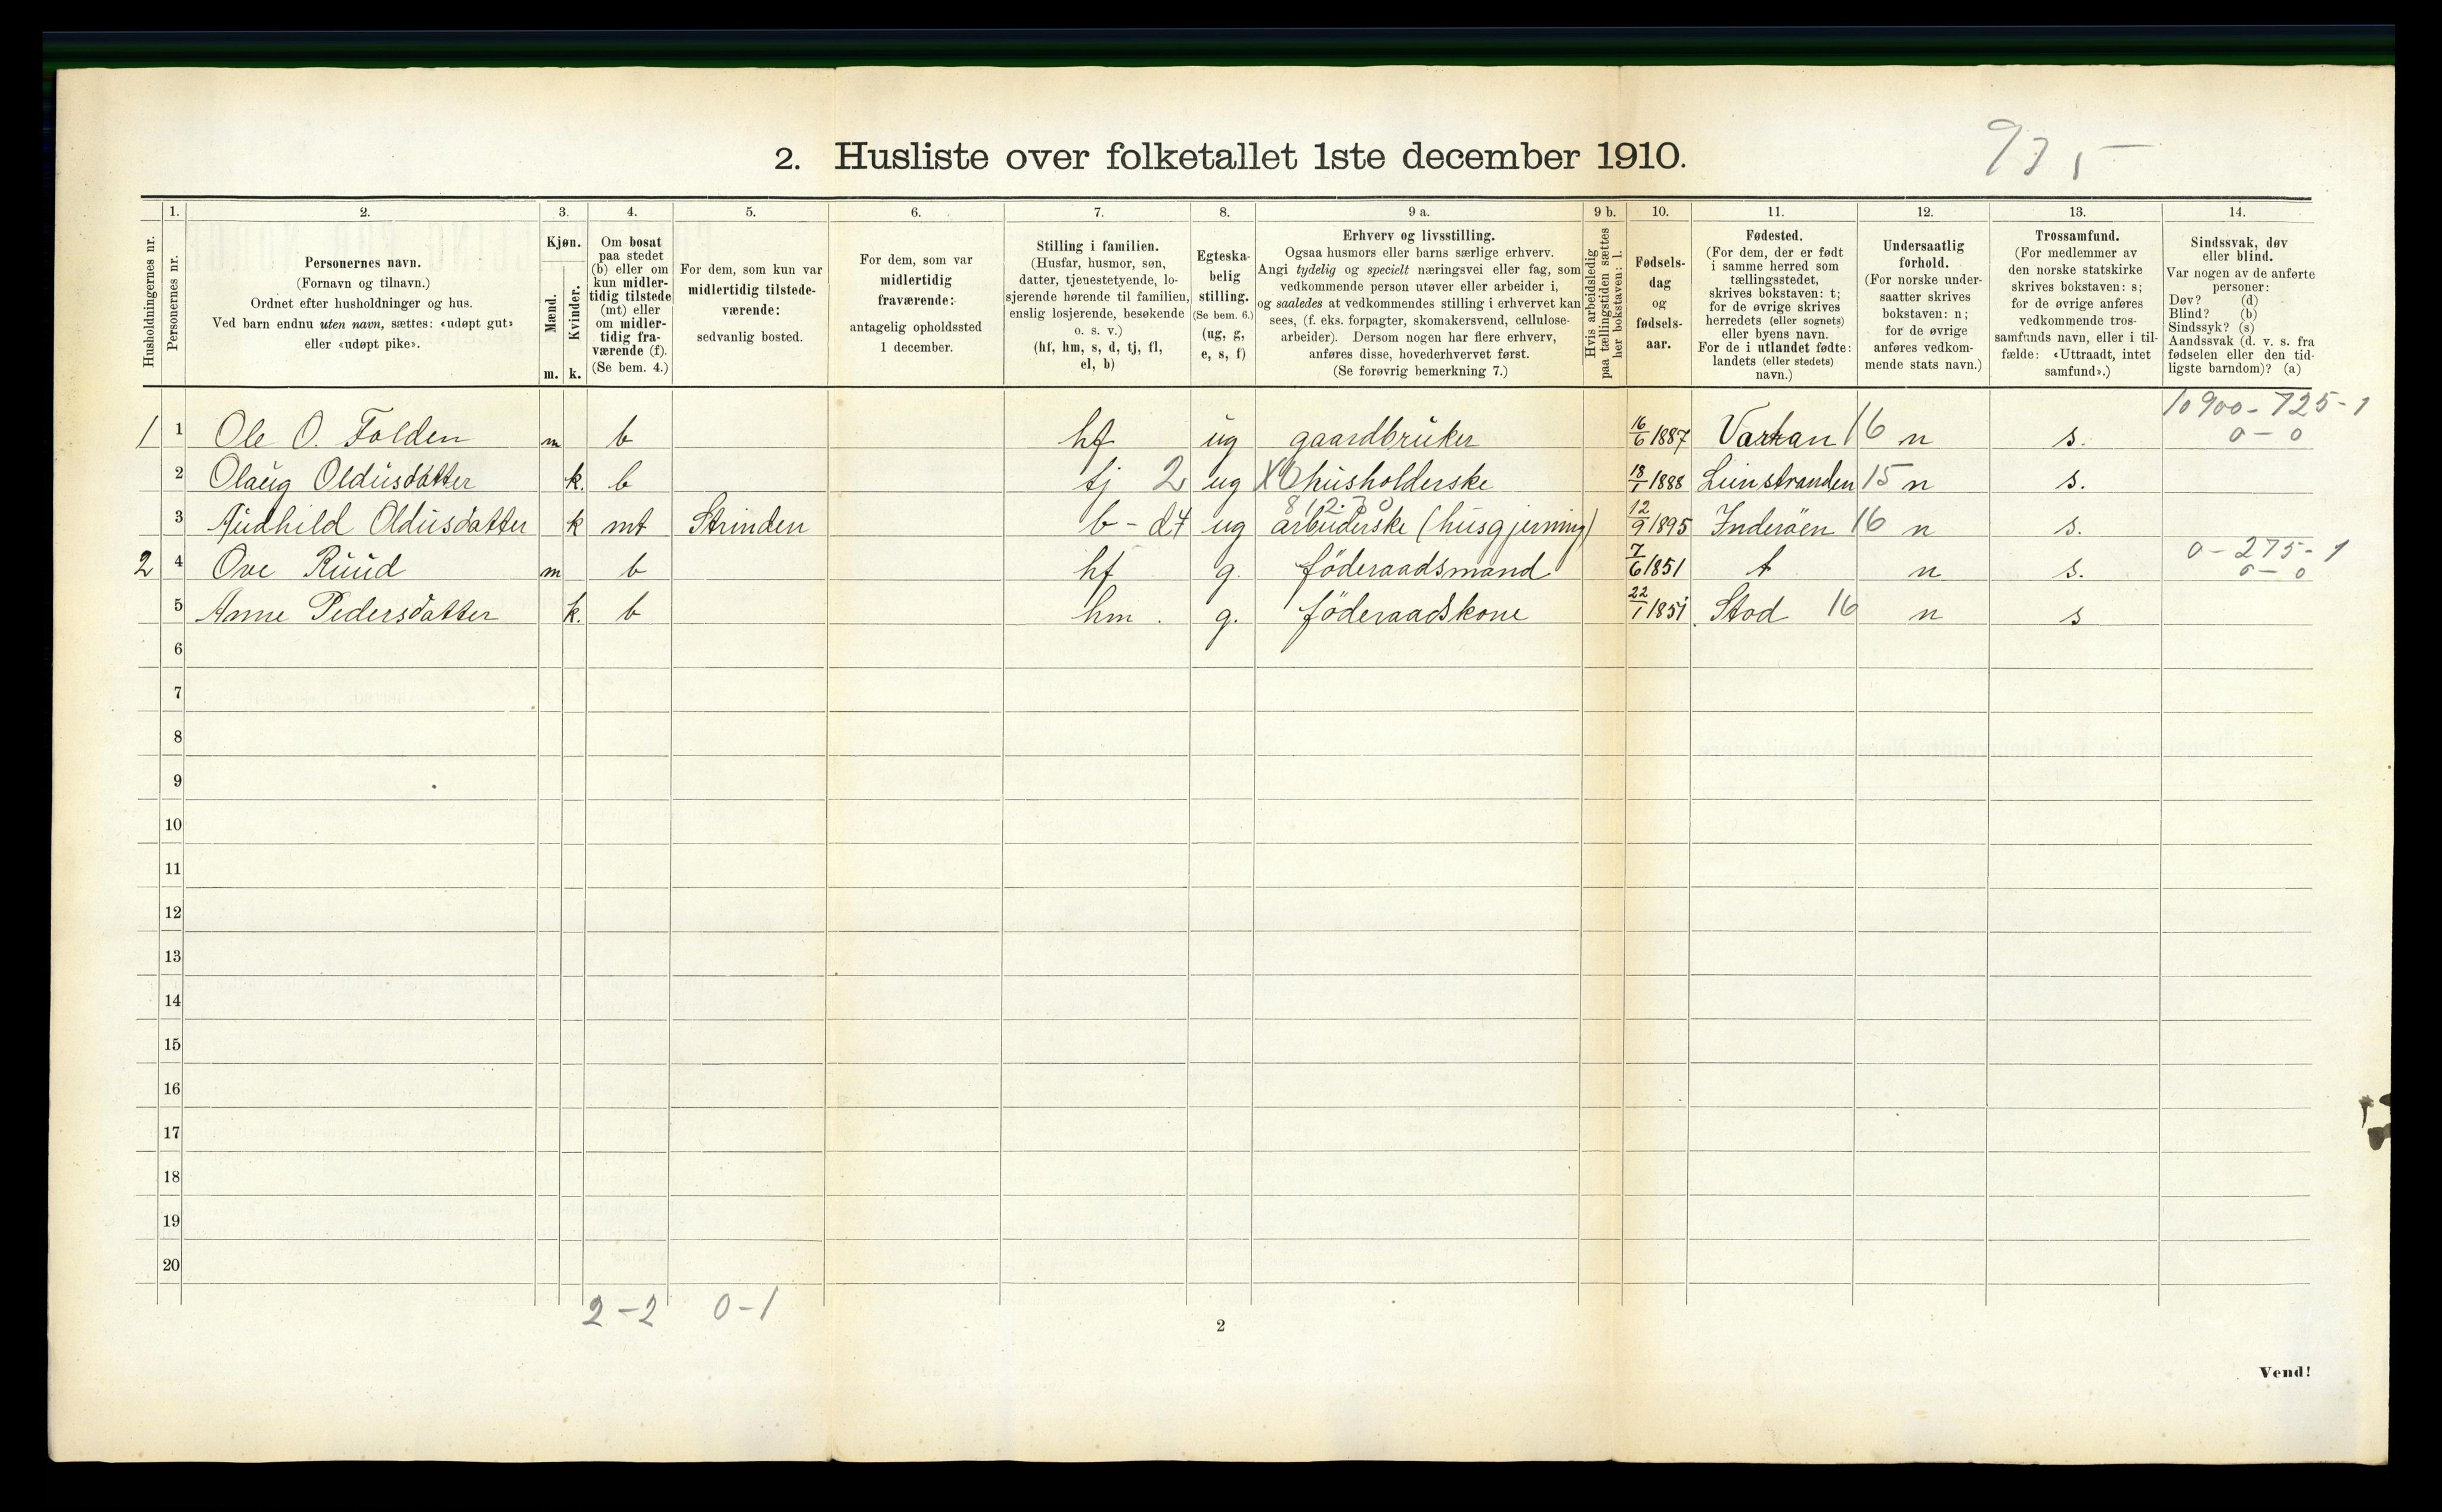 2. Husliste over folketallet 1ste december 1910.
Husholdningernes nr.
1.
Personernes nr.
2.
Personernes navn.
(Fornavn og tilnavn.)
Ordnet efter husholdninger og hus.
Ved barn endnu uten navn, sættes: «udøpt gut»
eller «udøpt pike».
3.
Kjøn.
Mænd.
Kvinder.
m. k.
4.
Om bosat
paa stedet
(b) eller om
kun midler-
tidig tilstede
(mt) eller
om midler-
tidig fra-
værende (f).
(Se bem. 4.)
5.
For dem, som kun var
midlertidig tilstede-
værende:
sedvanlig bosted.
6.
For dem, som var
midlertidig
fraværende:
antagelig opholdssted
1 december.
7.
Stilling i familien.
(Husfar, husmor, søn,
datter, tjenestetyende, lo-
sjerende hørende til familien,
enslig losjerende, besøkende
o. s. v.)
(hf, hm, s, d, tj, fl,
el, b)
8.
Egteska-
belig
stilling.
(Se bem. 6.)
(ug, g,
e, s, f)
9 a.
Erhverv og livsstilling.
Ogsaa husmors eller barns særlige erhverv.
Angi tydelig og specielt næringsvei eller fag, som
vedkommende person utøver eller arbeider i,
og saaledes at vedkommendes stilling i erhvervet kan
sees, (f. eks. forpagter, skomakersvend, cellulose-
arbeider). Dersom nogen har flere erhverv,
anføres disse, hovederhvervet først.
(Se forøvrig bemerkning 7.)
9 b.
Hvis arbeidsledig
paa tællingstiden sættes
her bokstaven: l.
10.
Fødsels-
dag
og
fødsels-
aar.
11.
Fødested.
(For dem, der er født
i samme herred som
tællingsstedet,
skrives bokstaven: t;
for de øvrige skrives
herredets (eller sognets)
eller byens navn.
For de i utlandet fødte:
landets (eller stedets)
navn.)
12.
Undersaatlig
forhold.
(For norske under-
saatter skrives
bokstaven: n;
for de øvrige
anføres vedkom-
mende stats navn.)
13.
Trossamfund.
(For medlemmer av
den norske statskirke
skrives bokstaven: s;
for de øvrige anføres
vedkommende tros-
samfunds navn, eller i til-
fælde: «Uttraadt, intet
samfund».)
14.
Sindssvak, døv
eller blind.
Var nogen av de anførte
personer:
Døv? (d)
Blind? (b)
Sindssyk? (s)
Aandssvak (d. v. s. fra
fødselen eller den tid-
ligste barndom)? (a)
10900-725-1
1 1 Ole O. Folden m b hf ug gaardbruker 16/6 1887 Vartan 16 n s. 0-0
2 Olaug Oldusdatter k. b tj 2 ug husholderske 18/1 1888 Leinstranden 15 n s.
3 Audhild Oldusdatter k mt Strinden b - d4 ug arbeiderske (husgjerning) 12/9 1895 Inderöen 16 n s.
0-275-1
2 4 Ove Ruud m b hf g. föderaadsmand 7/6 1851 t n s. 0-0
5 Anne Pedersdatter k. b hm. g. föderaadskone 22/1 1851 Stod 16 n s
6
7
8
9
10
11
12
13
14
15
16
17
18
19
20
2-2 0-1
2
Vend!